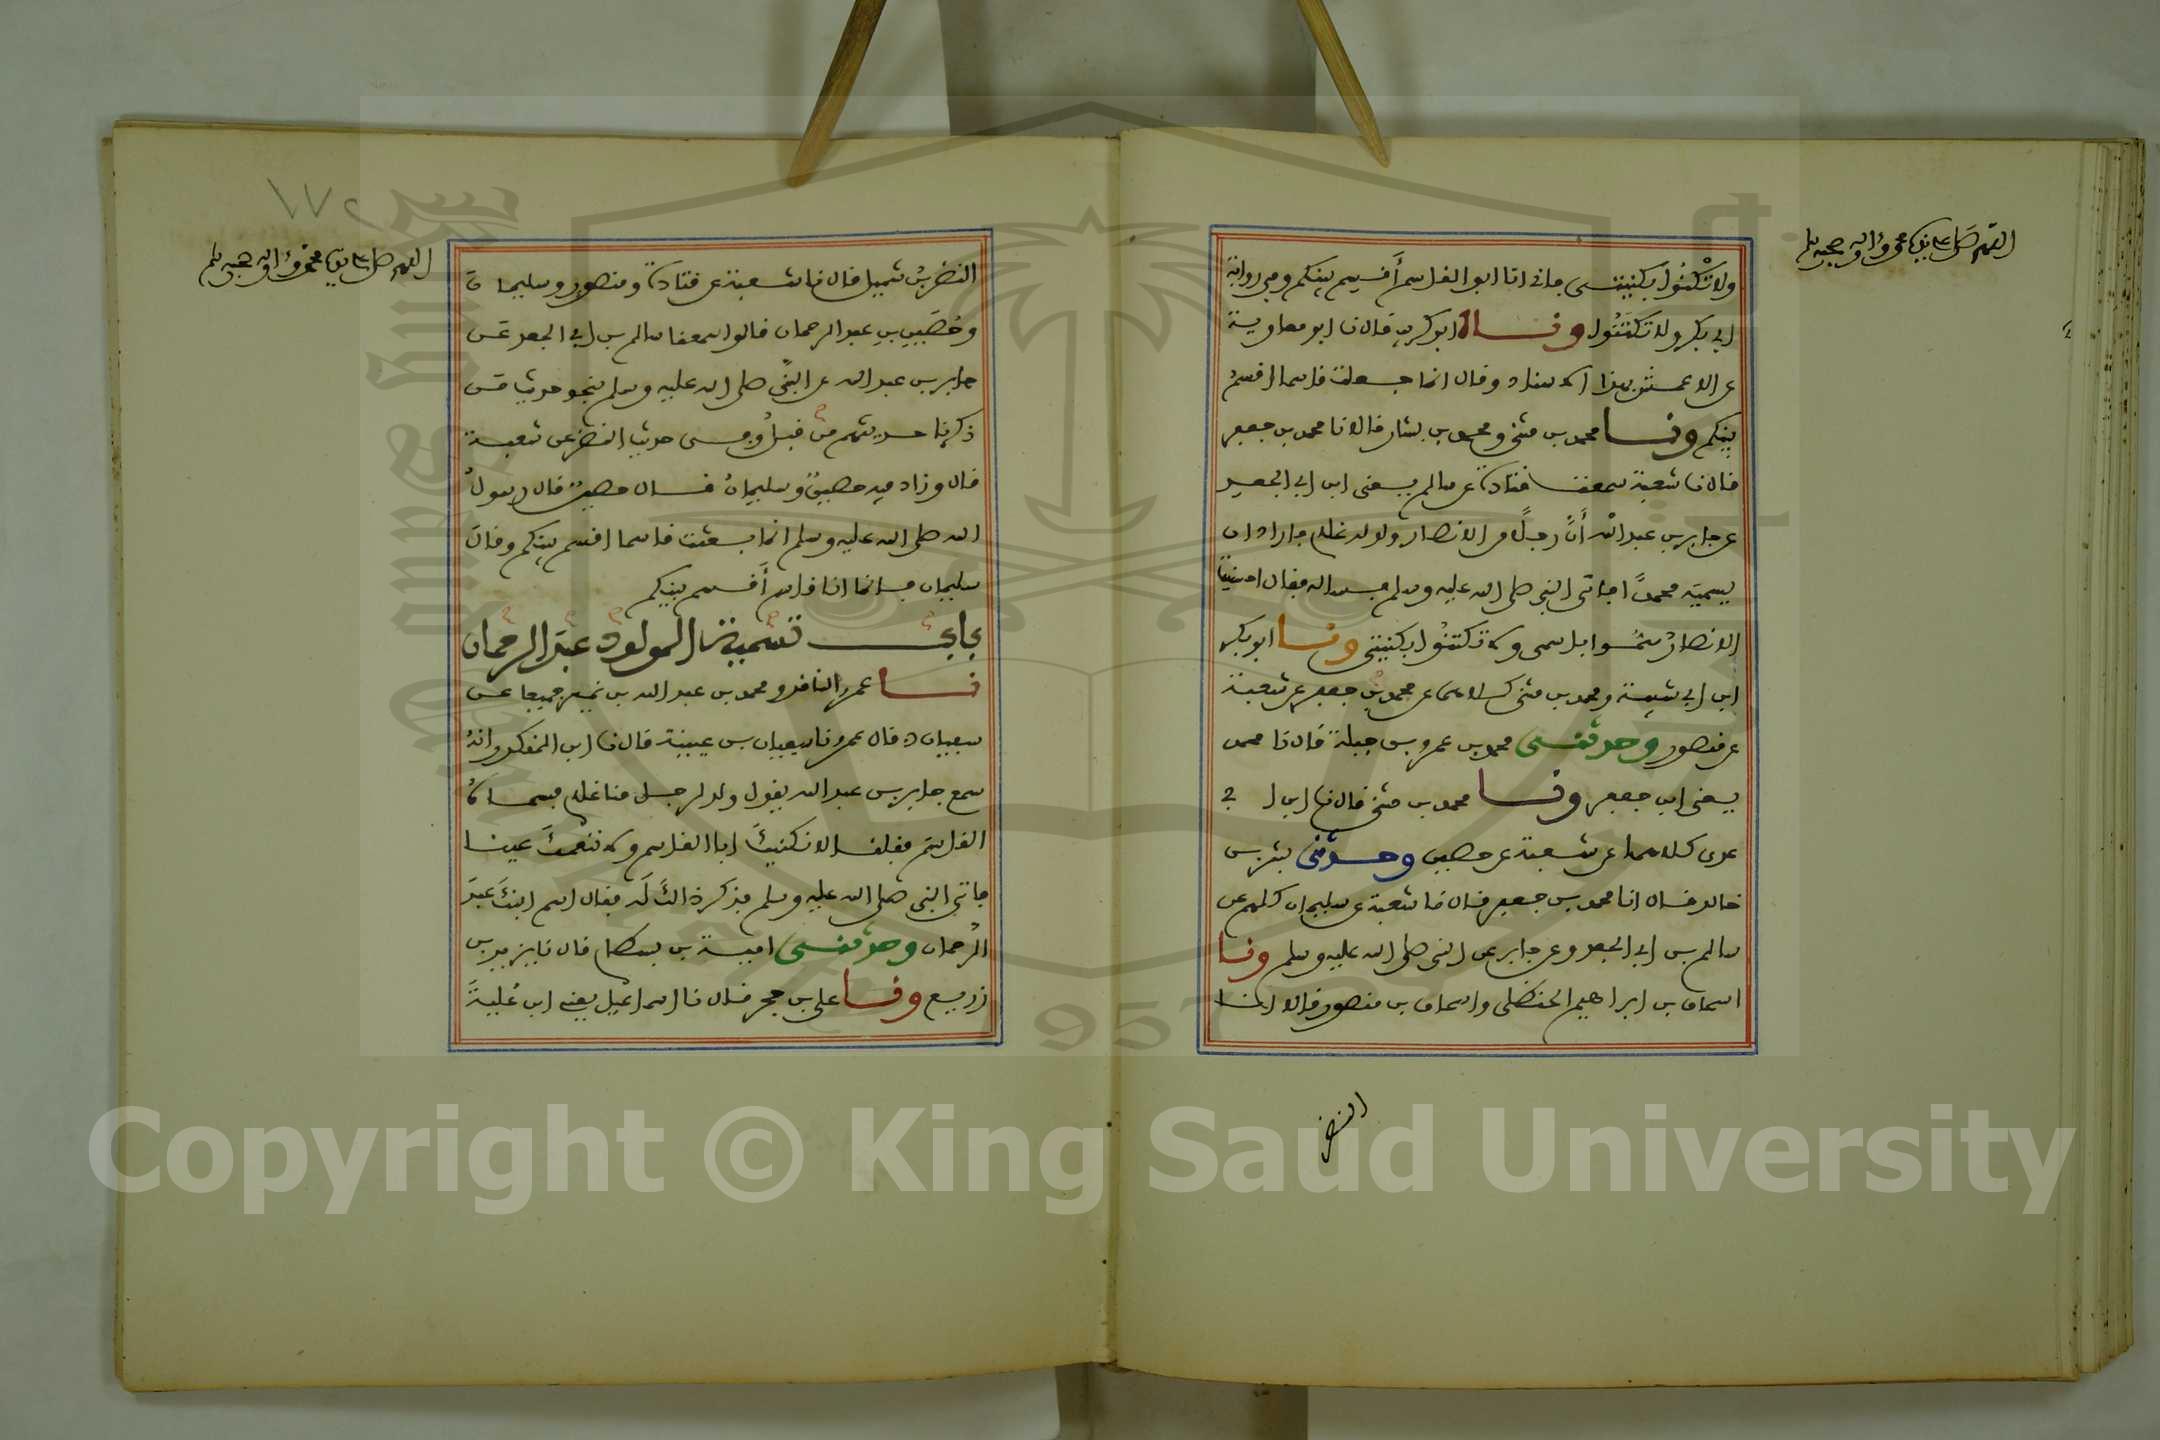 اللهم صل على نبيك محمد وءاله وصحبه وسلم
ولا تكنوا بكنيتي فاني انا ابو القاسم أقسم بينكم وفي رواية
ابي بكر ولا تكتنوا ونا ابو كريب قال نا ابو معاوية
عن الاعمش بهذا الاسناد وقال انما جعلت قاسما اقسم
بينكم ونا محمد بن مثنى ومحمد بن بشار قالا نا محمد بن جعفر
قال نا شعبة سمعت قتادة عن سالم يعني ابن ابي الجعد
عن جابر بن عبد الله أن رجلا من الانصار ولد له غلام فاراد ان
يسميه محمدا فاتى النبي صلى الله عليه وسلم فسأله فقال احسنت
الانصار سموا باسمي ولا تكتنوا بكنيتي ونا ابو بكر
ابن ابي شيبة ومحمد بن مثنى كلاهما عن محمد بن جعفر عن شعبة
عن منصور وحدثني محمد بن عمرو بن جبلة قال نا محمد
يعني ابن جعفر ونا محمد بن مثنى قال نا ابن ابي
عدي كلاهما عن شعبة عن حصين وحدثني بشر بن
خالد قال انا محمد بن جعفر قال نا شعبة عن سليمان كلهم عن
سالم بن ابي الجعد وعن جابر عن النبي صلى الله عليه وسلم ونا
اسحاق بن ابراهيم الحنظلي واسحاق بن منصور قالا انا
النضر
١٧٢
اللهم صل على نبيك محمد وءاله وصحبه وسلم
النضر بن شميل قال نا شعبة عن قتادة ومنصور وسليمان
وحصين بن عبد الرحمان قالوا سمعنا سالم بن ابي الجعد عن
جابر بن عبد الله عن النبي صلى الله عليه وسلم بنحو حديث من
ذكرنا حديثهم من قبل وفي حديث النضر عن شعبة
قال وزاد فيه حصين وسليمان قال حصين قال رسول
الله صلى الله عليه وسلم انما بعثت قاسما اقسم بينكم وقال
سليمان فانما انا قاسم أقسم بينكم
باب تسمية المولود عبد الرحمان
نا عمرو الناقد ومحمد بن عبد الله بن نمير جميعا عن
سفيان قال عمرو نا سفيان بن عيينة قال نا ابن المنكدر انه
سمع جابر بن عبد الله يقول ولد لرجل منا غلام فسماه
القاسم فقلنا لا نكنيك ابا القاسم ولا ننعمك عينا
فاتى النبي صلى الله عليه وسلم فذكر ذالك له فقال اسم ابنك عبد
الرحمان وحدثني امية بن بسطام قال نا يزيد بن
زريع ونا علي بن حجر قال نا اسماعيل يعني ابن علية
Copyright © King Saud University
1957